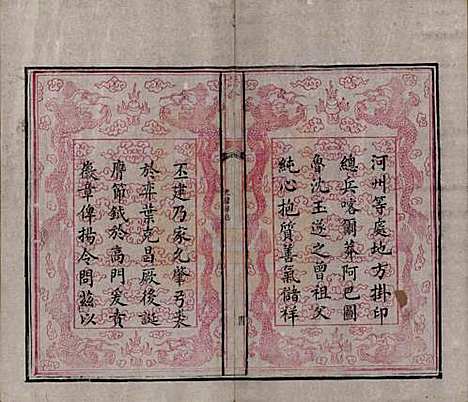 河州等處地方掛印
總兵喀爾莽阿巴圖
魯沈玉遂之曾祖父
純心抱質善氣儲祥
丕建乃家允肇弓裘
於奕葉克昌厥後誕
膺節鉞於高門爰賁
徽章俾揚令問茲以